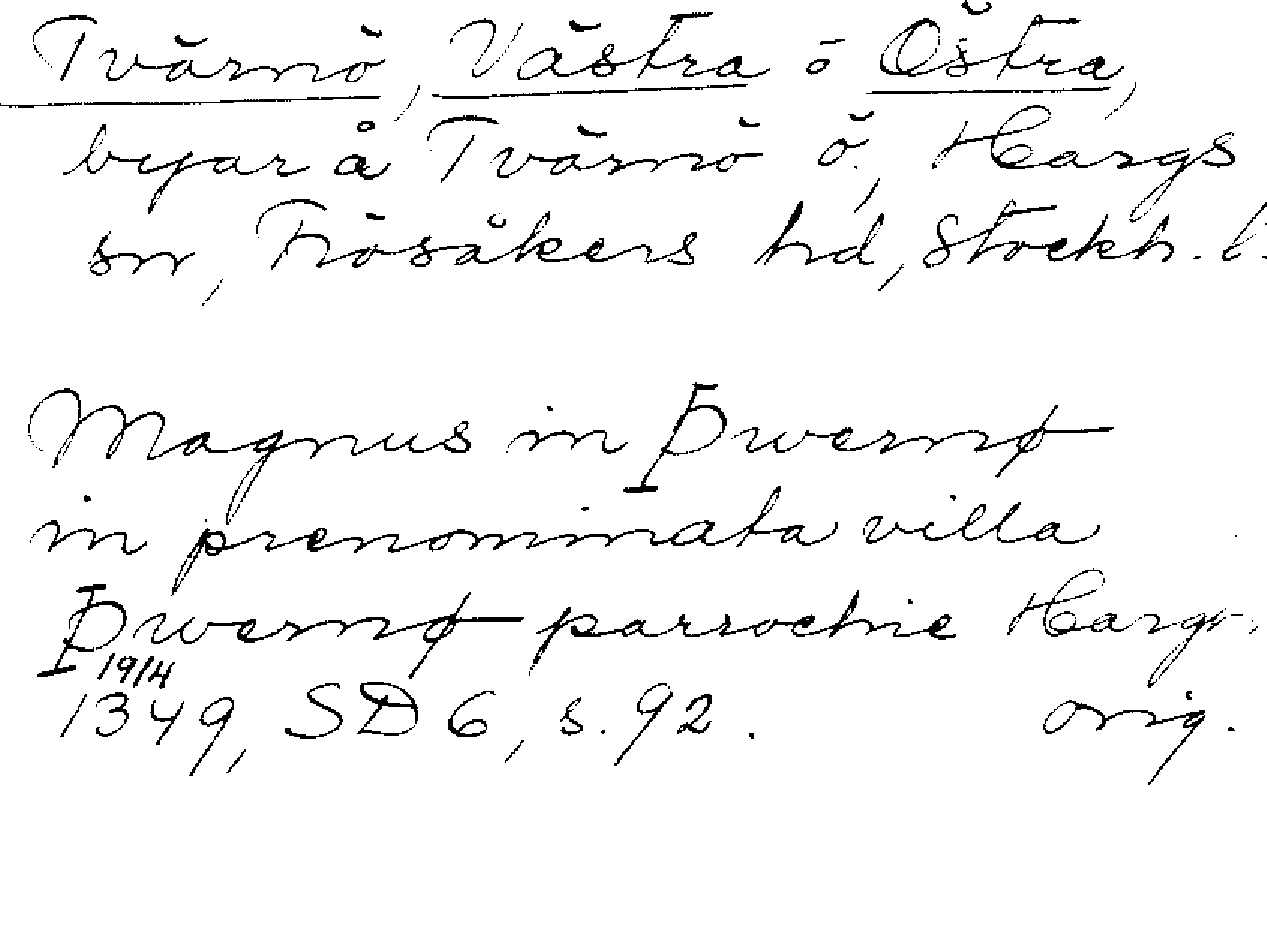 Tvärnö, Västra o Östra,
byar å Tvärnö ö, Hargs
sn, Frösåkers hd, Stockh. l.
Magnus in Þwernø
in prenominata villa
Þwernø parrochie Hargx,
19/4
1349, SD 6, s. 92. orig.